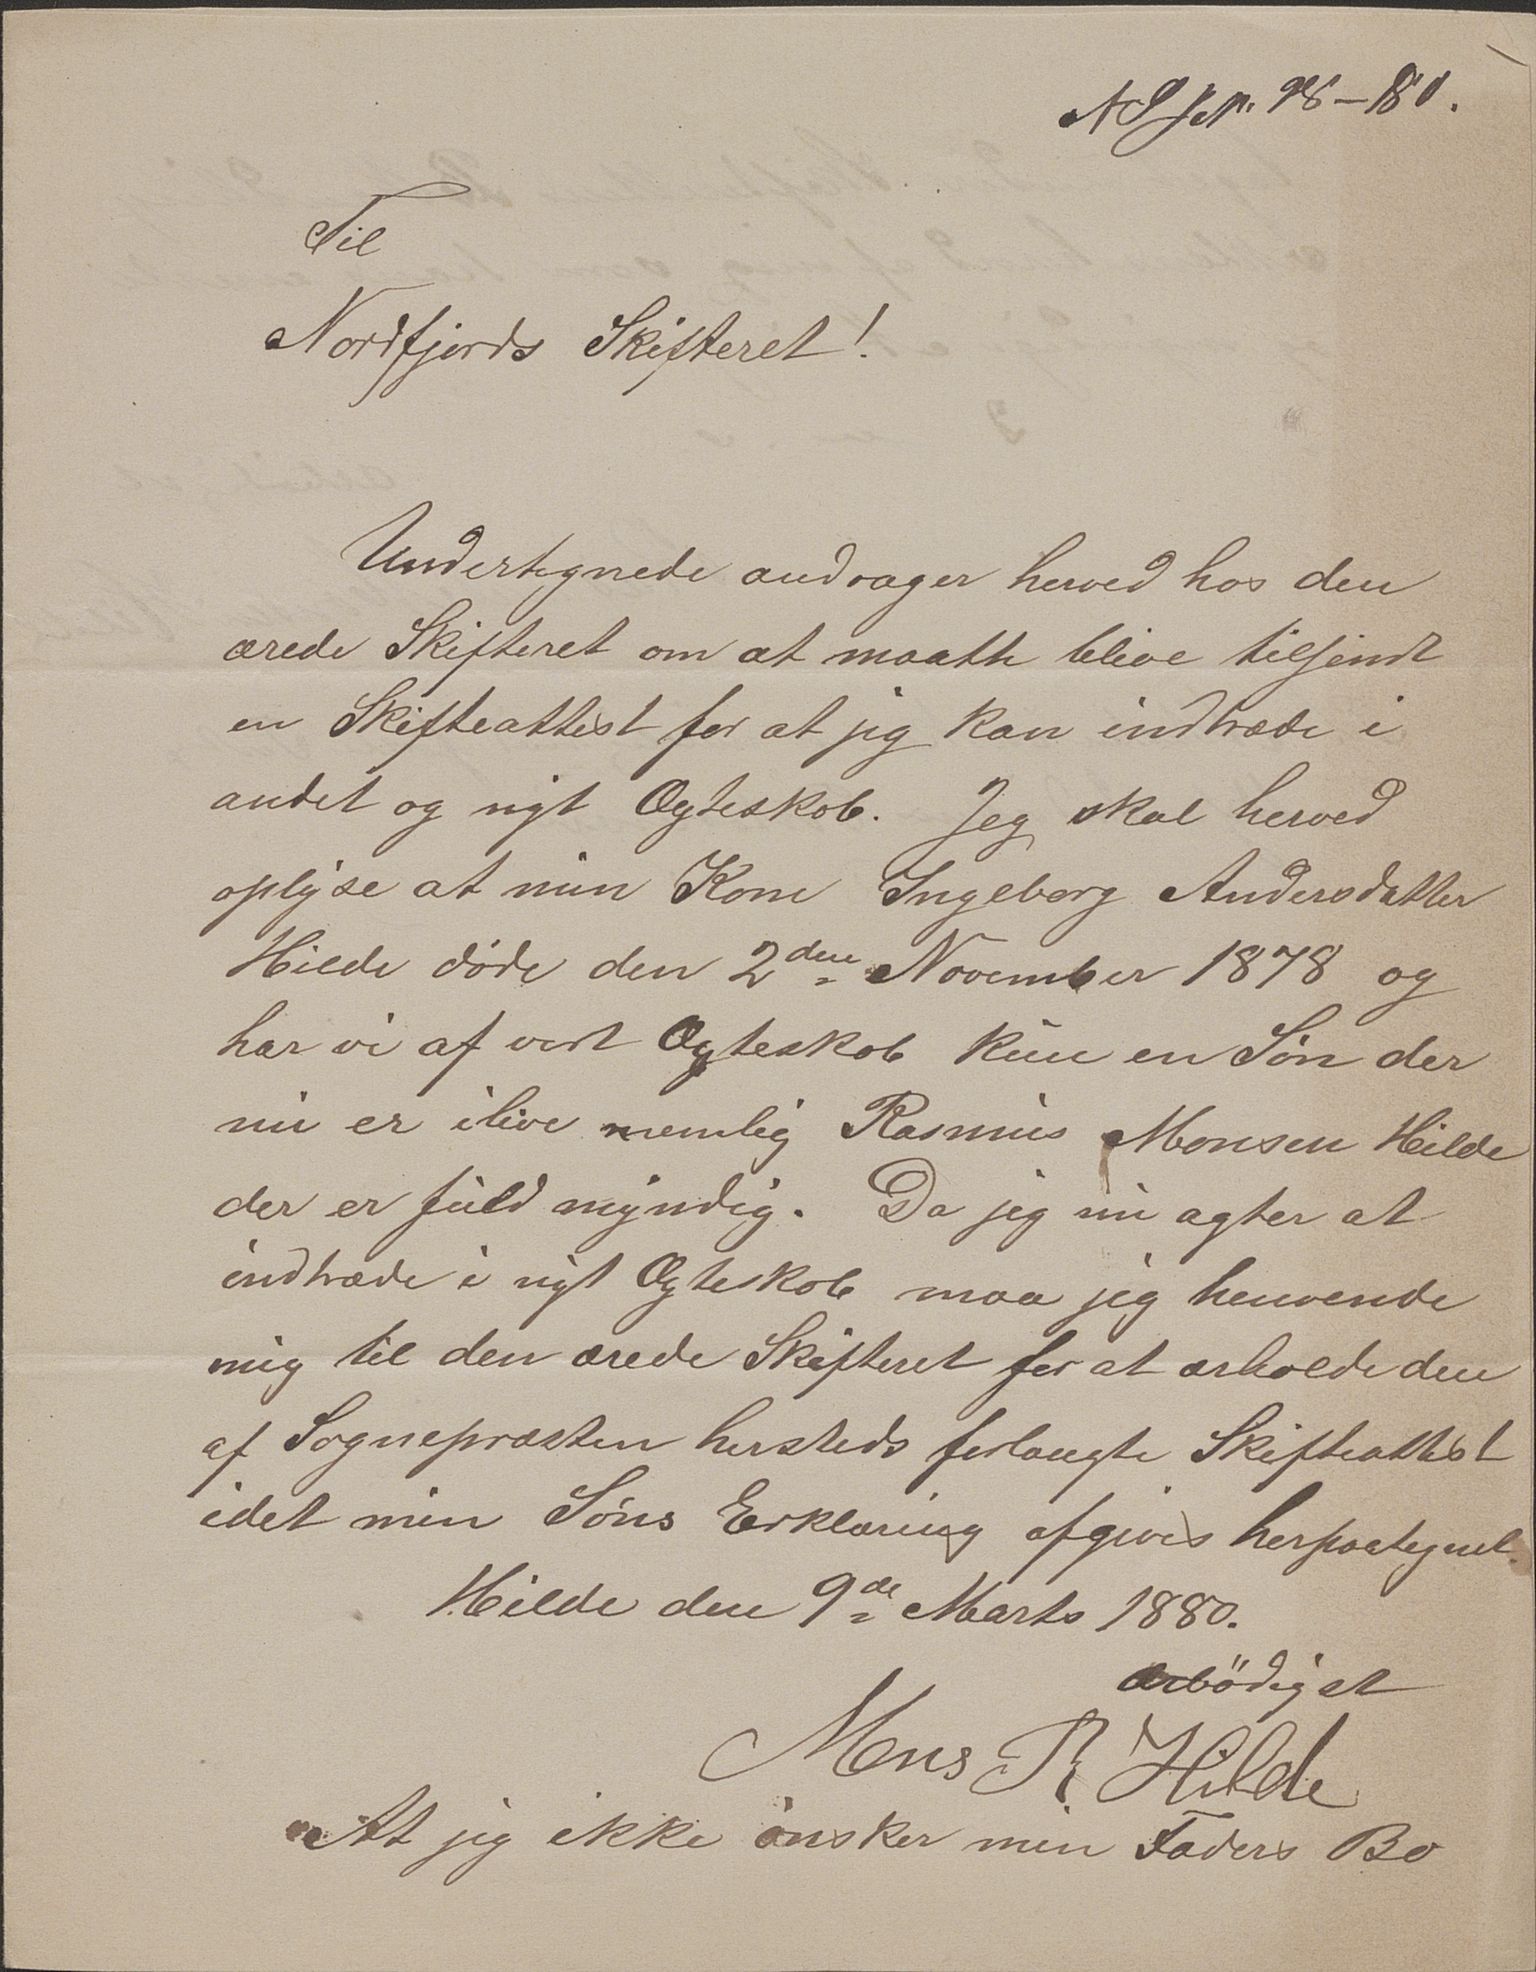 Til
Nordfjords Skifteret!
Undertegnede andrager herved hos den
ærede Skifteret om at maatte blive tilsendt
en Skifteattest for at jeg kan indtræde i
andet og nyt Ægteskab. Jeg skal herved
oplyse at min Kone Ingeborg Andersdatter
Hilde døde den 2den November 1878 og
har vi af vort Ægteskab kun en Søn der
nu er ilive nemlig Rasmus Monsen Hilde
der er fuld myndig. Da jeg nu agter at
indtræde i nyt Ægteskab maa jeg henvende
mig til den ærede Skifteret for at ærholde den
af Sognepræsten hersteds forlangte Skifteattest
idet min Søns Erklæring afgives herpaategnet.
Hilde den 9de Marts 1880.
ærbödigst
Mons R Hilde
At jeg ikke ønsker min Faders Bo